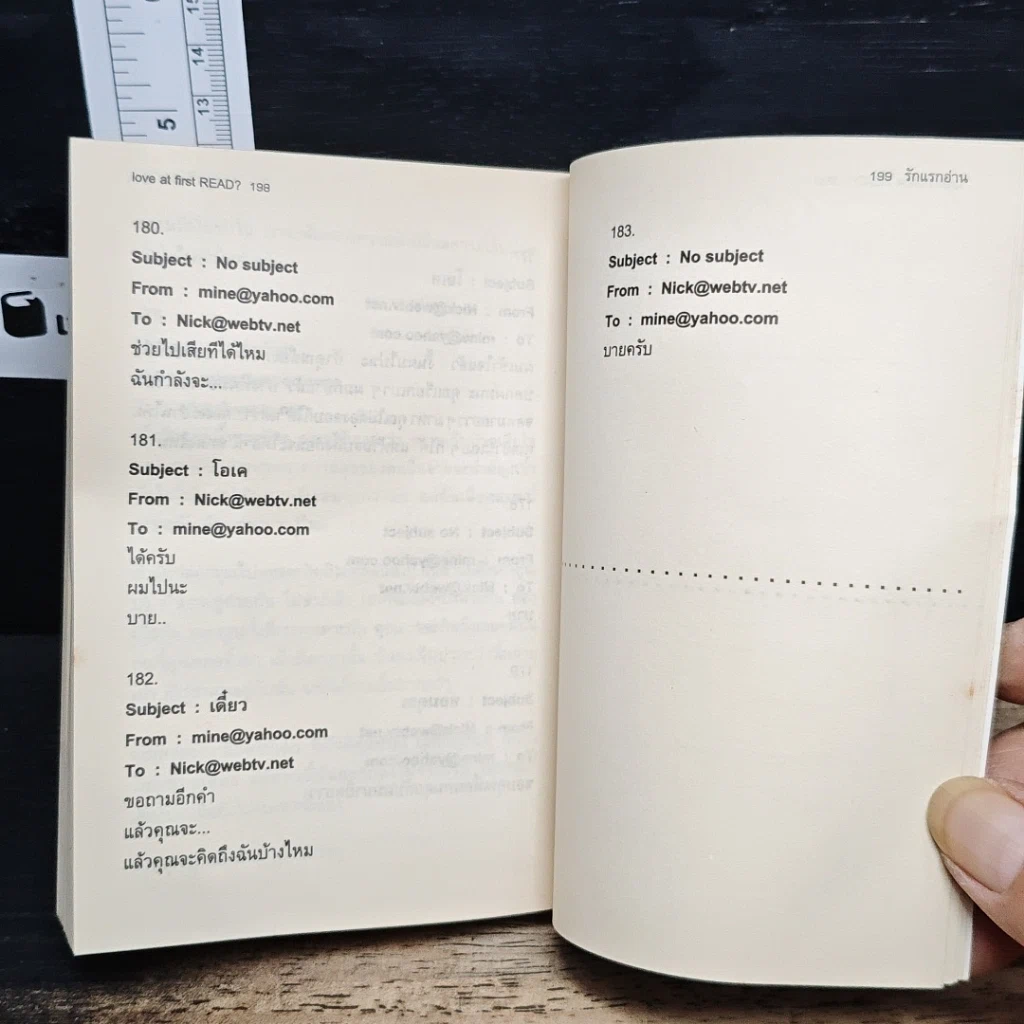 15
14
13
5
love at first READ? 198
180.
Subject : No subject
From : mine@yahoo.com
To : Nick@webtv.net
ช่วยไปเสียทีได้ไหม
ฉันกำลังจะ...
181.
Subject : โอเค
From : Nick@webtv.net
To : mine@yahoo.com
ได้ครับ
ผมไปนะ
บาย..
182.
Subject : เดี๋ยว
From : mine@yahoo.com
To : Nick@webtv.net
ขอถามอีกคำ
แล้วคุณจะ...
แล้วคุณจะคิดถึงฉันบ้างไหม
199 รักแรกอ่าน
183.
Subject : No subject
From : Nick@webtv.net
To : mine@yahoo.com
บายครับ